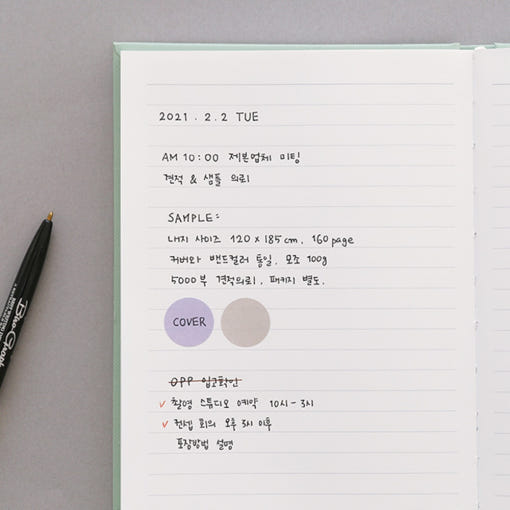 2021 . 2. 2 TUE
AM 10:00 제본업체 미팅
견적 & 샘플 의뢰
SAMPLE:
내지 사이즈 120 x 185 cm, 160 page
커버와 밴드컬러 통일, 모조 100g
5000부 견적의뢰, 패키지 별도.
COVER
OPP 입고확인
촬영 스튜디오 예약 10시-3시
컨셉 회의 오후 3시 이후
포장방법 설명
Blue Graph